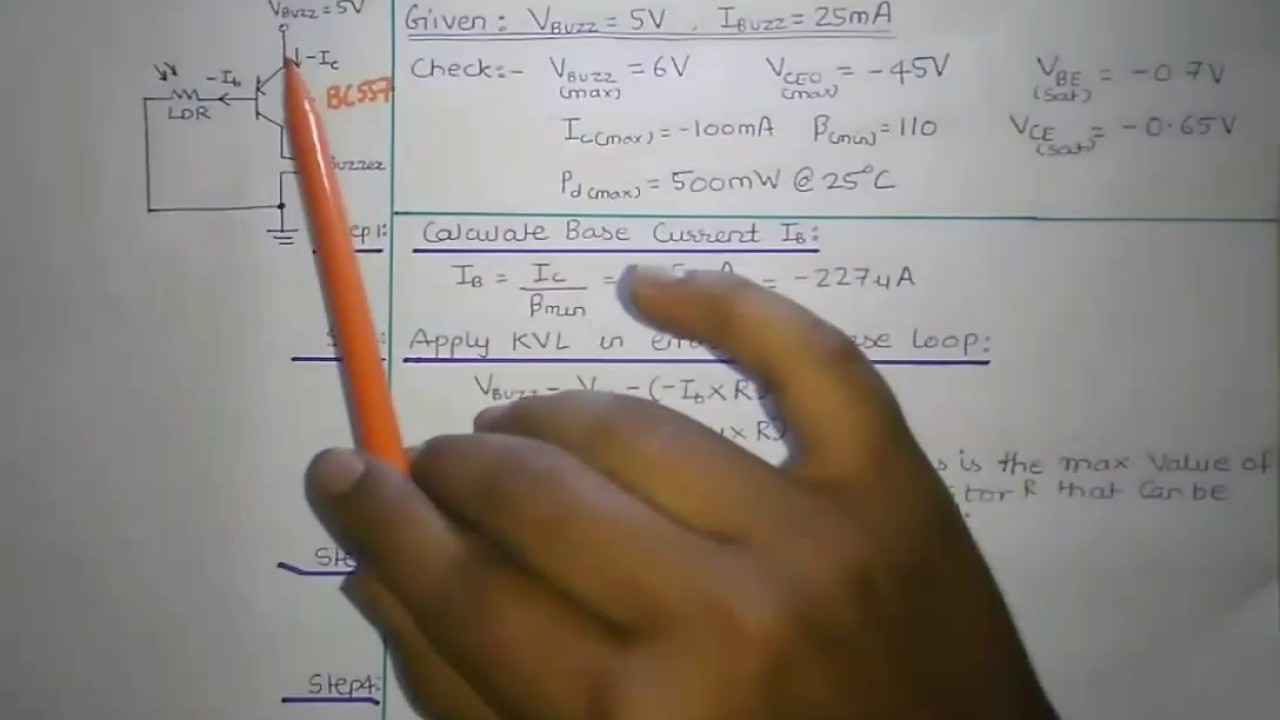 VBUZZ = 5V
-Ic
-Ib
LDR
BC557
Buzzer
Given: VBUZZ = 5V , IBUZZ = 25mA
Check:- VBUZZ (max) = 6V VCEO (max) = -45V VBE (sat) = -0.7V
Ic(max) = -100mA β(min) = 110 VCE (sat) = -0.65V
Pd(max) = 500mW @ 25°C
ep1: Calculate Base Current IB:
IB = Ic / βmin = = -227μA
Apply KVL in Loop:
VBUZZ - - (-Ib × R)
× R)
is the max Value of
R that can be
Ste
Step4: